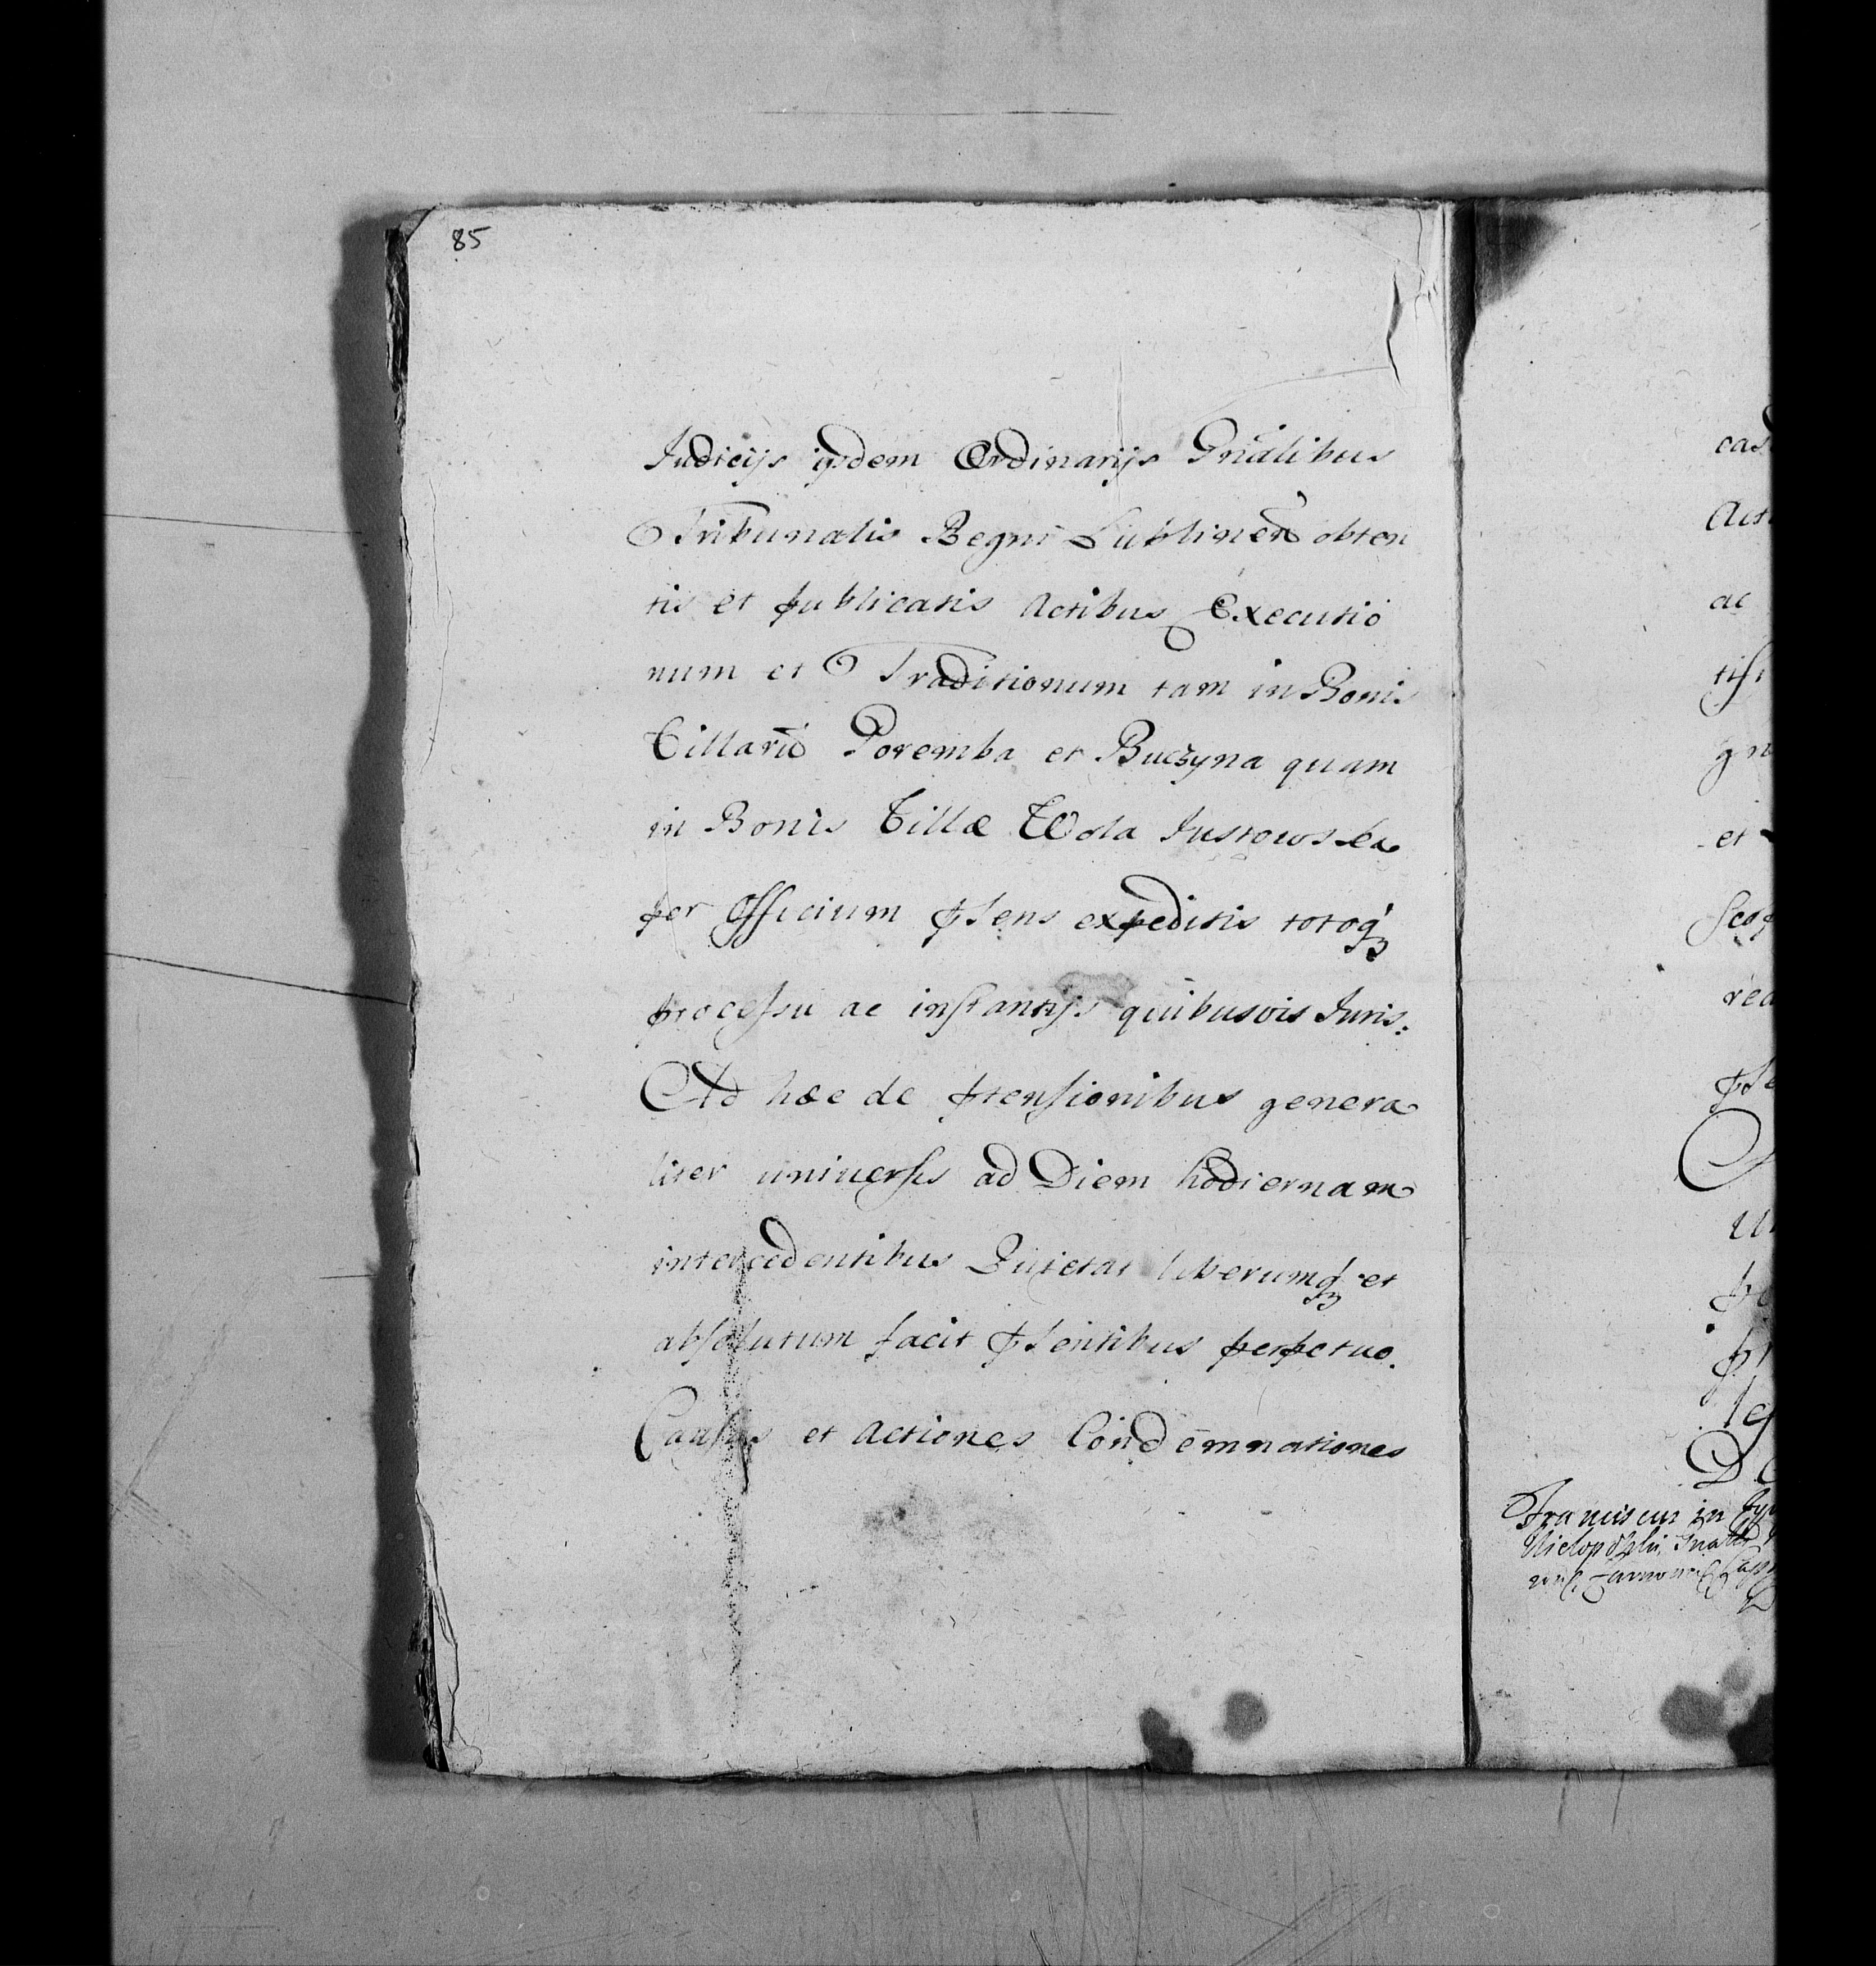 85
Judicijs ijsdem Ordinarijs Gnalibus
Tribunalis Regni Lublinen obten
tis et publicatis Actibus Executio
num et Traditionum tam in Bonis
Villarū Poremba et Buczyna quam
in Bonis Villæ Wola Justowska
per Officium pſens expeditis totoqꝫ
proceſsu ac inſtantijs quibusvis Juris.
Ad hæc de ptenſionibus genera
liter univerſis ad Diem hodiernam
intercedentibus Quietat liberumqꝫ et
abſolutum facit pſentibus perpetuo.
Cauſas et Actiones Condēmnationes
cas
Acti
ac
tiſi
gn
et
red
Franciscus in